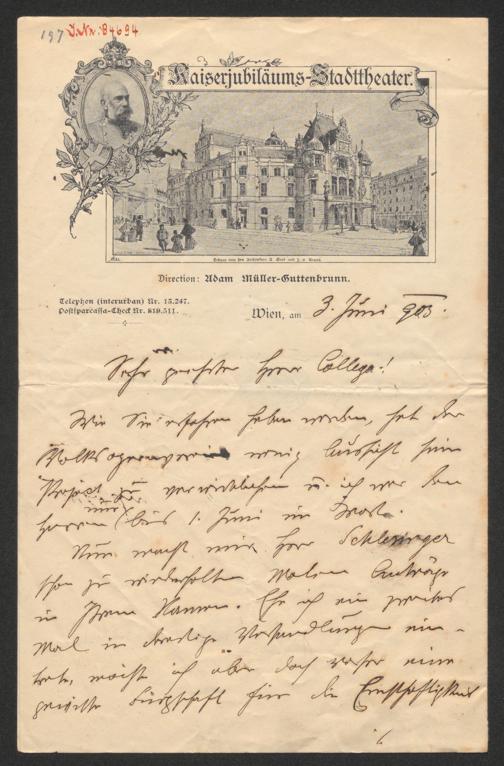 197 J.Nr. 84694
Kaiserjubiläums-Stadttheater.
Direction: Adam Müller-Guttenbrunn.
Telephon (interurban) Nr. 15.247.
Postsparcassa-Check Nr. 819.511.
Wien, am 3. Juni 903.
Sehr geehrter Herr College!
Wie Sie erfahren haben werden, hat der
Volksopernverein wenig Aussicht sein
Project zu verwirklichen u. ich war den
Herren nur bis 1. Juni im Wort.
Nun macht mir Herr Schlesinger
schon zu wiederholten Malen Anträge
in Ihrem Namen. Ehe ich ein zweites
Mal in derartige Verhandlungen ein-
trete, möchte ich aber doch vorher eine
gewisse Bürgschaft für die Ernsthaftigkeit